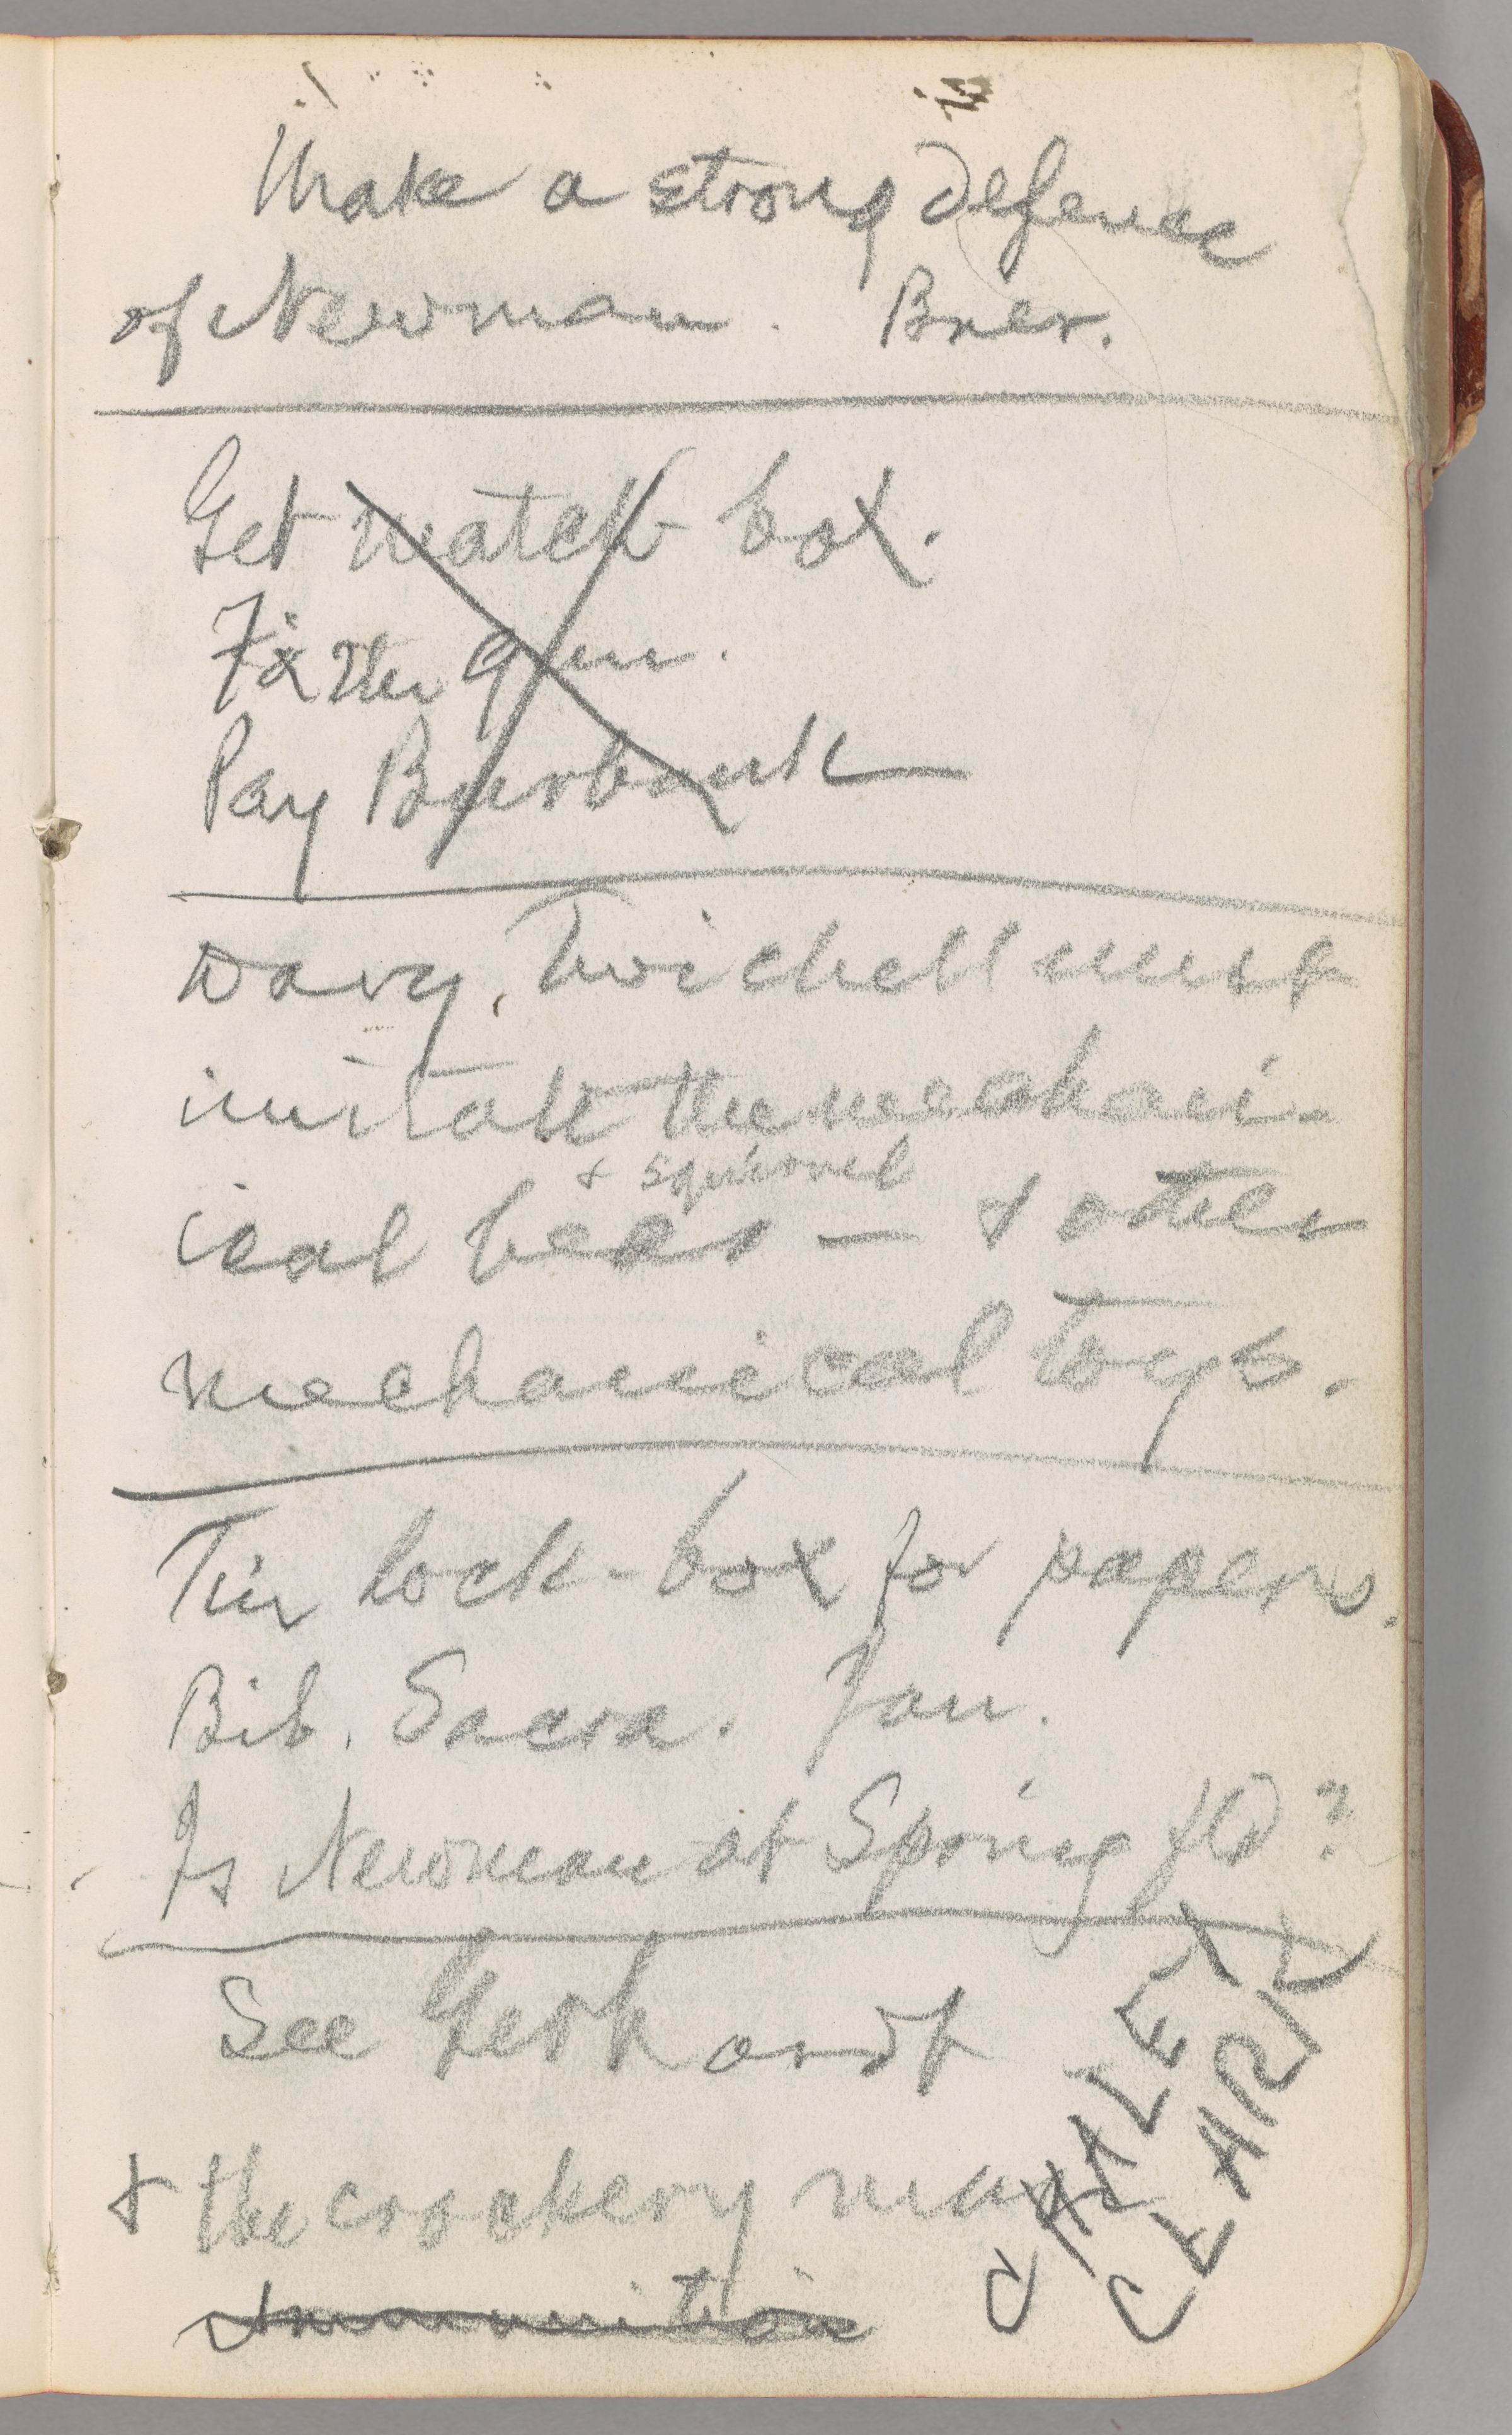 Make a strong defence
of Newman. Brer.
Get match box.
Fix the gun.
Pay Burbank
Davy, Twichell must
imitate the mechan-
ical bear & squirrel — & other
mechanical toys.
Tin lock-box for papers.
Bib. Sacra. Jan.
Is Newman at Springfld?
See Gerhardt
& the crockery man
Ammunition
CLARK